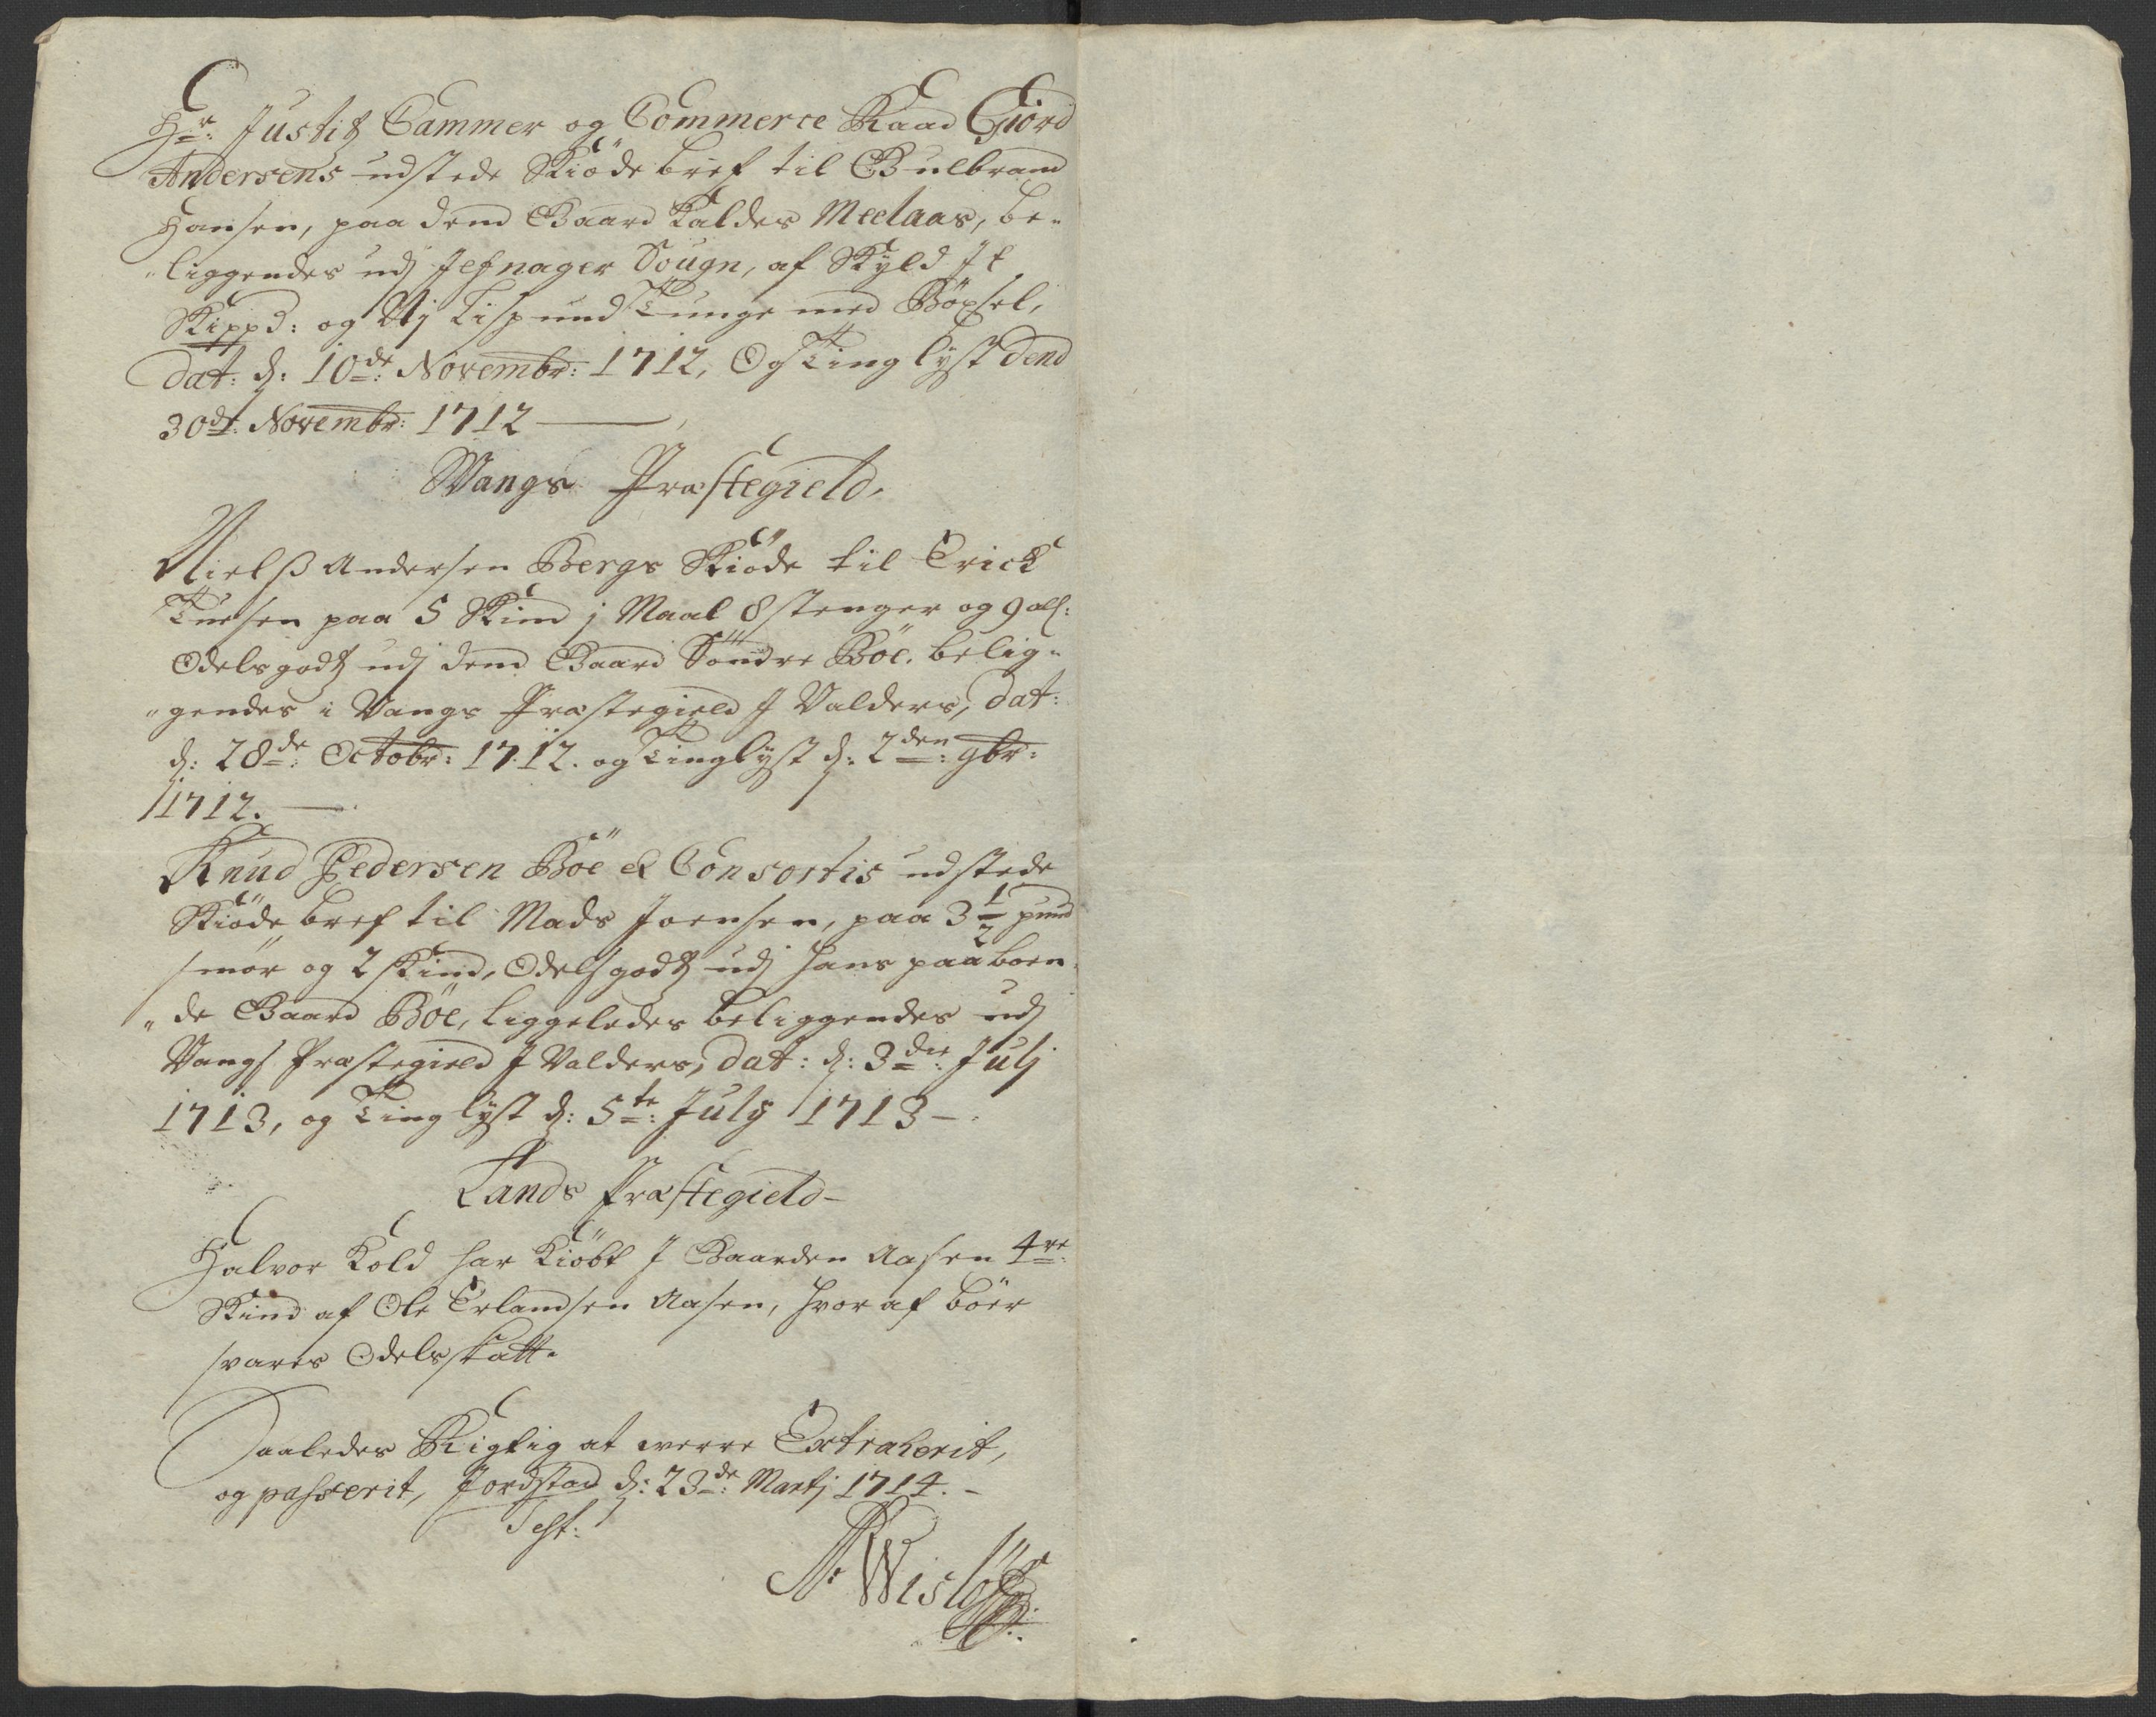 Hr: Justitz Cammer og Commerce Raad Giord
Andersens udstede Skiöde bref til Gulbrand
Hansen, paa dend Gaard kaldes Meelaas, be-
liggendes udj Jefnager Sougn, af Skyld It
Skippd: og Vj Lispund Tunge med Böxsel,
dat: d: 10de: Novembr: 1712, Og Tinglyst dend
30de: Novembr: 1712
Wangs Præstegield.
Nielß Andersen Bergs Skiöde til Erick
Tuesen paa 5 Skind j Maal 8 stenger og 9 all:
Odelsgodtz udj dend Gaard Söndre Böe, belig-
gendes i Vangs Præstegield J Valders, dat:
d: 28de: Octobr: 1712. og Tinglyst d: 2den: 9br:
1712.
Knud Pedersen Böe & Consortis udstede
Skiöde bref til Mads Joensen, paa 3 1/2 pund
smör og 2 skind, Odelsgodtz udj hans paaboen-
de Gaard Böe, liggeledes beliggendes udj
Vangs Præstegield J Valders, dat: d: 3die: Julj
1713, og Tinglyst d: 5te: July 1713
Lands Præstegield
Halvor Kold har kiöbt J Gaarden Aasen 4re:
Skind af Ole Erlandsen Aasen, hvor af böer
svares Odelsskatt.
Saaledes Rigtig at were Extraherit,
og passerit, Jordstad d: 23de: Martj 1714.
Test:
N: Wislöff